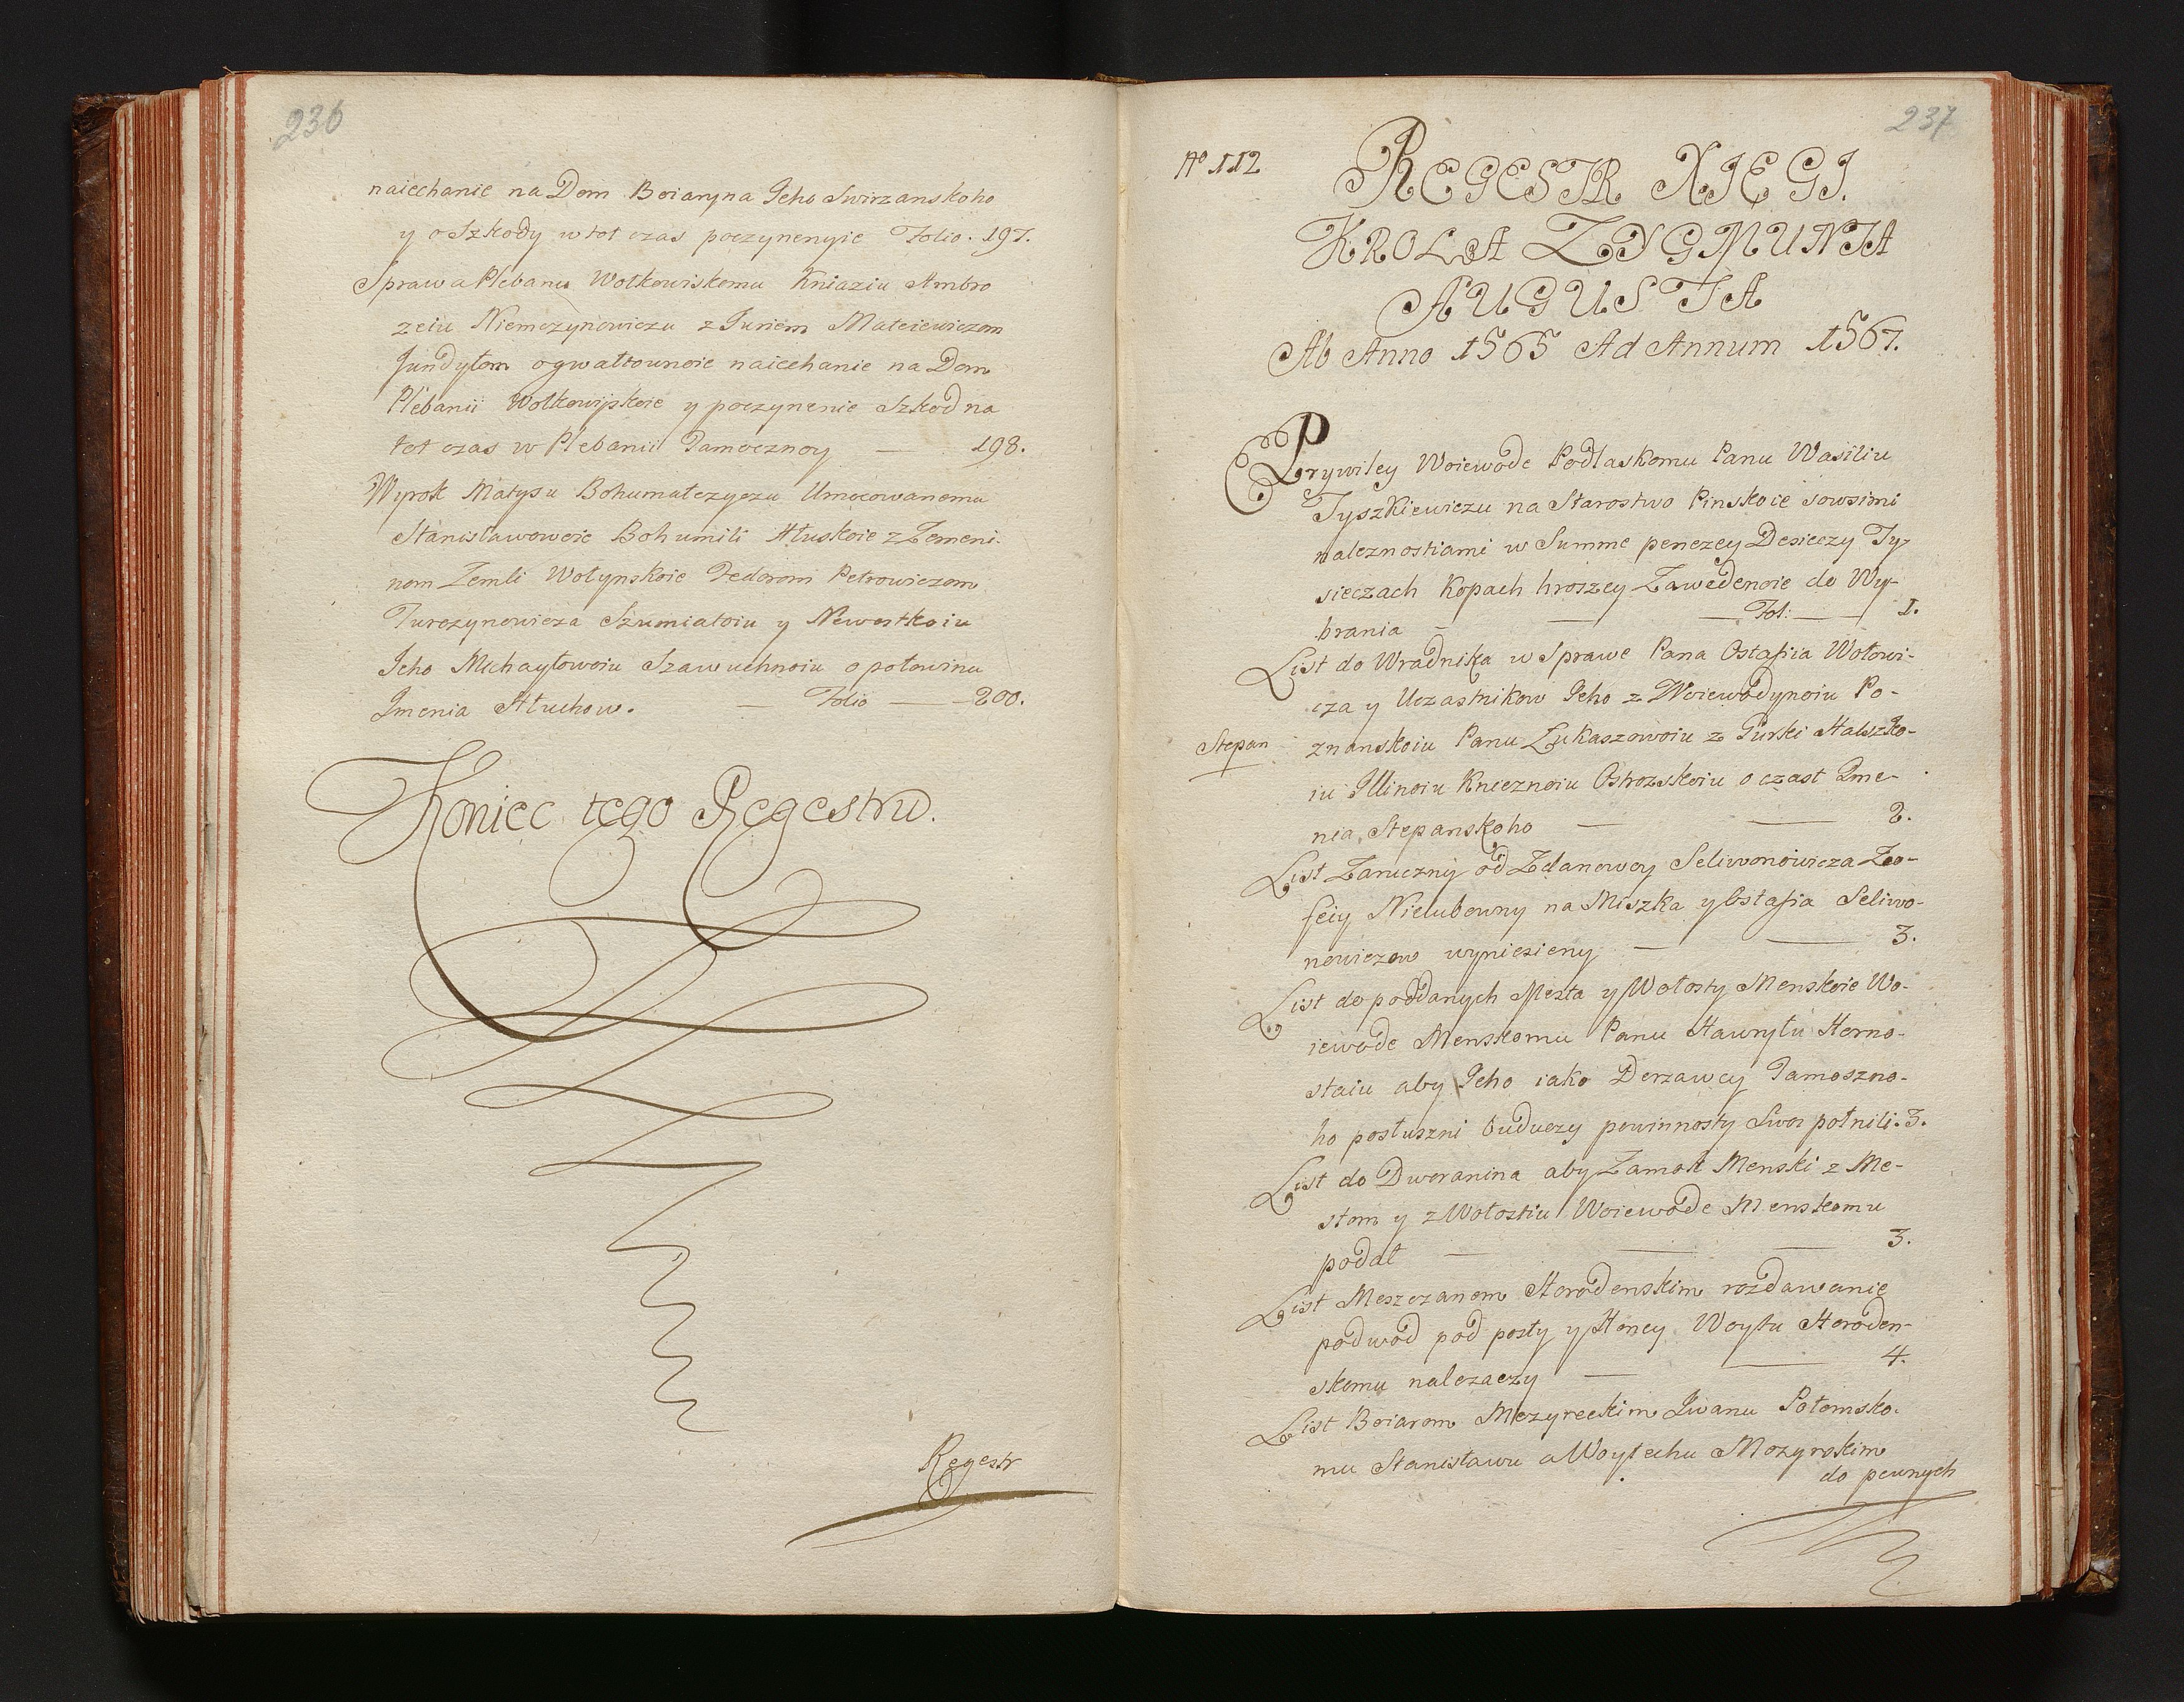 236
naiechanie na Dom Boiaryna Jeho Swirzanskoho
y o Szkody w tot czas poczynenyie Folio. 197.
Sprawa Plebanu Wołkowiskomu Kniaziu Ambro
zeiu Niemczynowiczu z Juriem Mateiewiczom
Jundyłom o gwałtownoie naiechanie na Dom
Plebanii Wołkowijskoie y poczynenie Szkod na
tot czas w Plebanii Tamoecznoy — 198.
Wyrok Matysu Bohumatczyczu Umocowanomu
Stanisławowoie Bohumili Hłuskoie z Zemeni-
nom Zemli Wołynskoie Fedorom Petrowiczom
Turczynowicza Szumiatoiu y Newestkoiu
Jeho Michayłowoiu Szawuchnoiu o połowinu
Jmenia Hłuchow. — Folio — 200.
Koniec tego Regestru.
Regestr
237
No 112
REGESTR XIĘGI.
KROLA ZYGMUNTA
AUGUSTA
Ab Anno 1565 Ad Annum 1567.
Prywiley Woiewode Podlaskomu Panu Wasiliu
Tyszkiewiczu na Starostwo Pinskoie sowsimi
naleznostiami w Summe penezey Desieczy Ty-
sieczach Kopach hroszey Zawedenoie do Wy-
brania — — — Fol: — 1.
List do Wradnika w Sprawe Pana Ostafiia Wołowi-
cza y Uczastnikow Jeho z Woiewodynoiu Po-
Stepan
znanskoiu Panu Łukaszowoiu z Gurki Halszko-
iu Illinoiu Knieznoiu Ostrozskoiu o czast Jme-
nia Stepanskoho — — 2.
List Zaruczny od Zdanowoy Seliwonowicza Zoo-
feiy Nielubowny na Miszka y Ostafia Seliwo-
nowiczow wyniesieny — — 3.
List do poddanych Mesta y Wołosty Menskoie Wo-
iewode Menskomu Panu Hawryłu Horno-
staiu aby Jeho iako Derzawcy Tamoszno-
ho posłuszni buduczy powinnosty Swoi połnili. 3.
List do Dworanina aby Zamok Menski z Me-
stom y z Wołostiu Woiewode Menskomu
podał — — — 3.
List Meszczanom Horodenskim rozdawanie
podwod pod posły y Honcy Woytu Horoden-
skomu nalezaczy — — 4.
List Boiarom Mezyreckim Jwanu Połomsko-
mu Stanisławu a Woytechu Mozyrskim
do pewnych